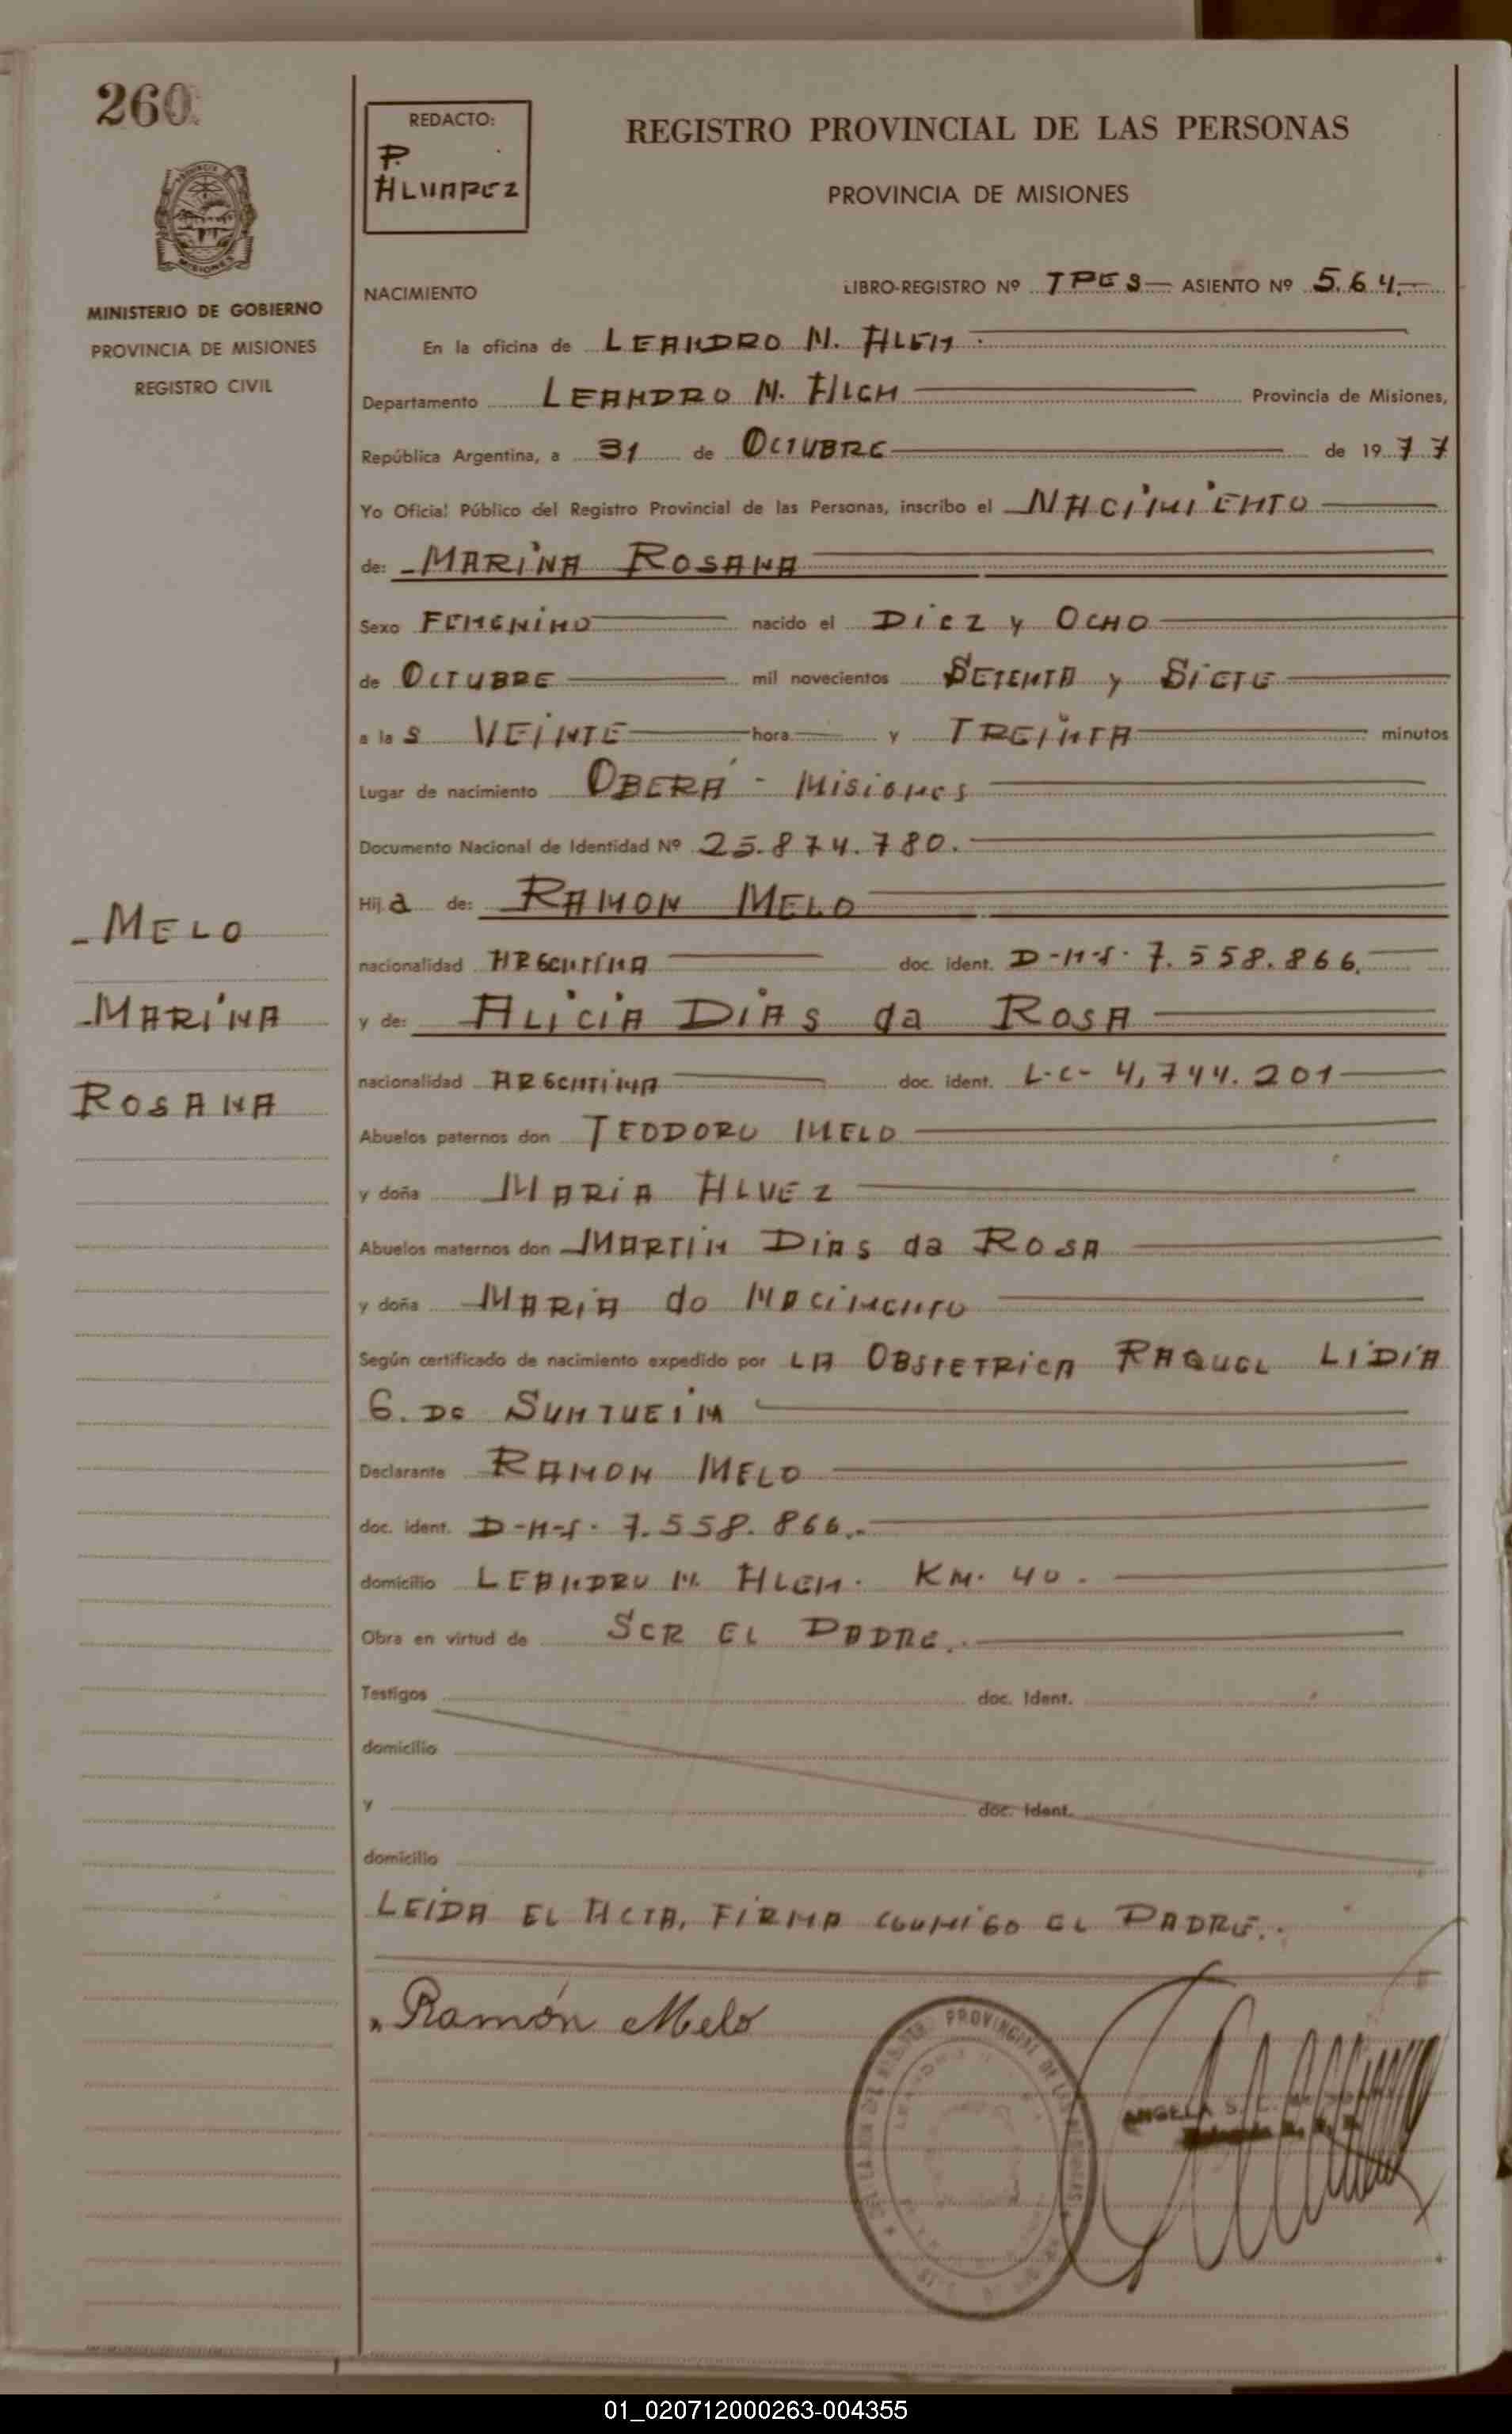 260
REDACTO:
P.
ALVAREZ
REGISTRO PROVINCIAL DE LAS PERSONAS
PROVINCIA DE MISIONES
MISIONES
MINISTERIO DE GOBIERNO
PROVINCIA DE MISIONES
REGISTRO CIVIL
NACIMIENTO LIBRO-REGISTRO Nº TRES — ASIENTO Nº 564.—
En la oficina de LEANDRO N. ALEM.
Departamento LEANDRO N. ALEM Provincia de Misiones,
República Argentina, a 31 de OCTUBRE de 1977
Yo Oficial Público del Registro Provincial de las Personas, inscribo el NACIMIENTO
de: - MARINA ROSANA
Sexo FEMENINO nacido el DIEZ y OCHO
de OCTUBRE mil novecientos SETENTA y SIETE
a las VEINTE hora y TREINTA minutos
Lugar de nacimiento OBERÁ - MISIONES
Documento Nacional de Identidad Nº 25.874.780.
Hija de: RAMON MELO
nacionalidad ARGENTINA doc. ident. D-N-I. 7.558.866.
y de: ALICIA DIAS da ROSA
nacionalidad ARGENTINA doc. ident. L-C- 4,744.201
Abuelos paternos don TEODORO MELO
y doña MARIA ALVEZ
Abuelos maternos don MARTIN DIAS da ROSA
y doña MARIA do NACIMENTO
Según certificado de nacimiento expedido por LA OBSTETRICA RAQUEL LIDIA
G. DE
Declarante RAMON MELO
doc. ident. D-N-I. 7.558.866.-
domicilio LEANDRO N. ALEM. KM. 40.
Obra en virtud de SER EL PADRE.
Testigos doc. Ident.
domicilio
y doc. Ident.
domicilio
LEIDA EL ACTA, FIRMA CONMIGO EL PADRE.
- MELO
- MARINA
ROSANA
Ramón Melo
PROVINCIAL DE LAS PERSONAS
ANGELA S.
01_020712000263-004355